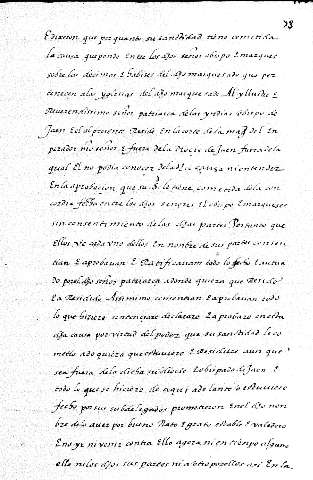 78
E dixeron que por quanto su santidad tiene cometida
la causa que pende Entre los dhos señor obispo E marques
sobre los diezmos E habitos del dho marquesado que per
tenecen a las yglesias del dho marquesado Al yllustre E
Reverendissimo señor patriarca de las yndias obispo de
Jaen E el al presente Reside En la corte de la magd del Em
perador nro señor E fuera de la diocesis de Jaen fuera de la
qual El no podia conocer de la dha causa ni entender
En la aprobacion que su sd le tiene cometida de la con
cordia fecha entre los dhos señores El obispo E marques
sin consentimiento de las dhas partes Por tanto que
Ellos e cada uno dellos En nombre de sus partes consen
tian E aprobauan E Ratificauan todo lo fecho E autua
do por el dho señor patriarca adonde quiera que Reside
E a Residido Assimismo consentian E aprobauan todo
lo que hiziere sentenciare declarare E aprobare en esta
dha causa por virtud del poder que su santidad le co
metio ado quiera que estuuiere E Residiere aun que
sea fuera de la dicha su diocesis E obispado de Jaen E
todo lo que se hiziere de aqui adelante o estuuiese
fecho por sus subdelegados prometieron En el dho nom
bre de lo auer por bueno Rato E grato estable E valedero
E no yr ni venir contra Ello agora ni en tiempo alguno
ellos ni los dhos sus partes ni otro por ellos asi En la